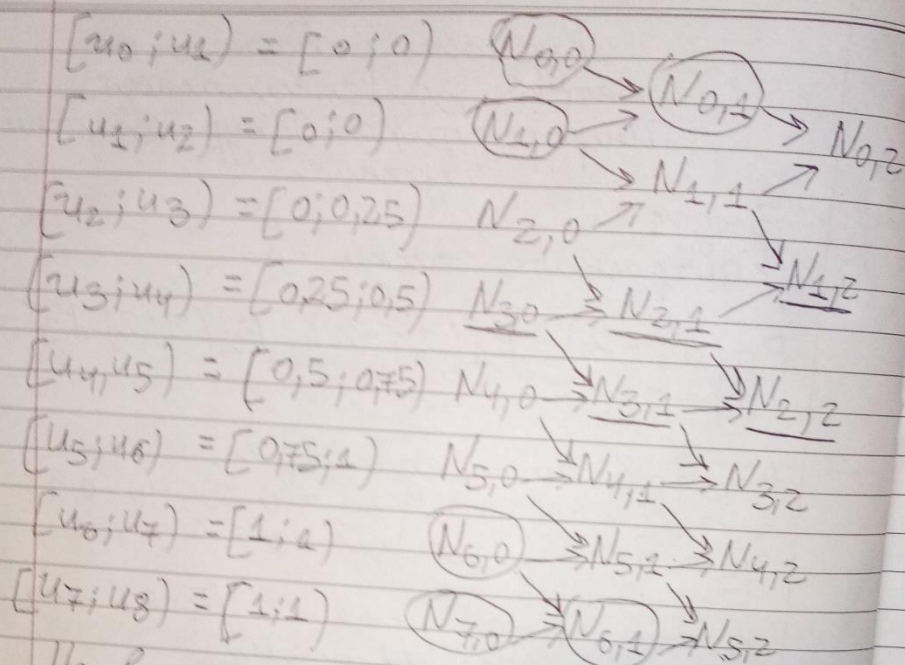 [u0 ; u1) = [0 ; 0) N0,0
N0,1
[u1 ; u2) = [0 ; 0) N1,0
N0,2
N1,1
[u2 ; u3) = [0 ; 0,25) N2,0
N1,2
[u3 ; u4) = [0,25 ; 0,5) N3,0 N2,1
[u4, u5) = [0,5 ; 0,75) N4,0 N3,1 N2,2
[u5 ; u6) = [0,75 ; 1) N5,0 N4,1 N3,2
[u6 ; u7) = [1 ; 1) N6,0 N5,1 N4,2
[u7 ; u8) = [1 ; 1) N7,0 N6,1 N5,2